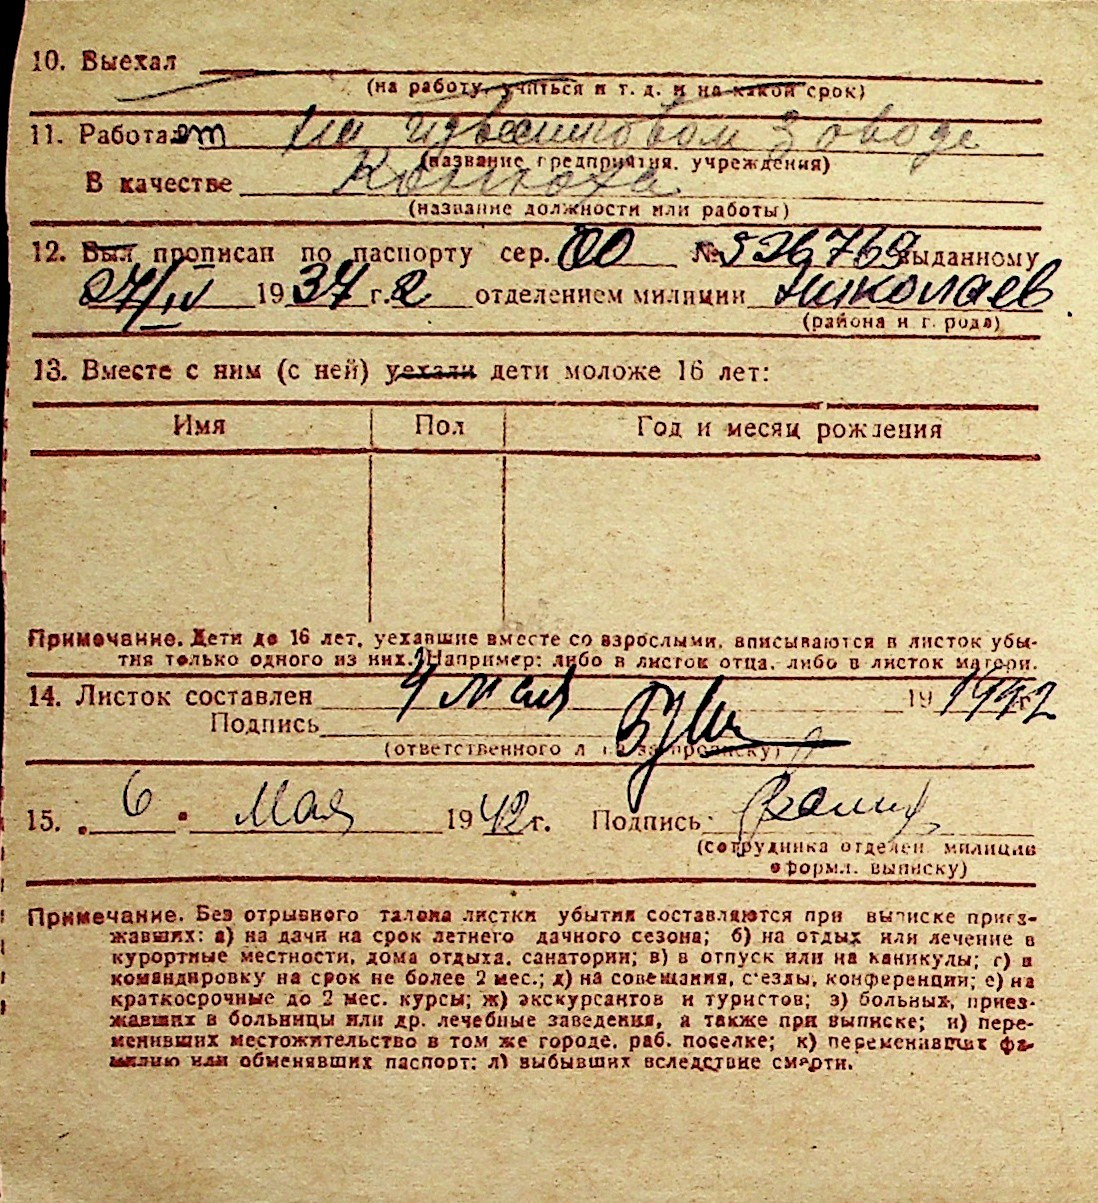 10. Выехал
(на работу, учиться и т. д. и на какой срок)
11. Работает на известковом Заводе
(название предприятия, учреждения)
В качестве Конюха
(название должности или работы)
12. Был прописан по паспорту сер. ОО № 526769 выданному
27/IV 1937 г. 2 отделением милиции Николаев
(района и города)
13. Вместе с ним (с ней) уехали дети моложе 16 лет:
Имя Пол Год и месяц рождения
Примечание. Дети до 16 лет, уехавшие вместе со взрослыми, вписываются в листок убы-
тия только одного из них. Например: либо в листок отца, либо в листок матери.
14. Листок составлен 4 мая 19 1942
Подпись
(ответственного л за прописку)
15. 6 Мая 1942г. Подпись
(сотрудника отделен. милиции
оформл. выписку)
Примечание. Без отрывного талона листки убытия составляются при выписке приез-
жавших: а) на дачи на срок летнего дачного сезона; б) на отдых или лечение в
курортные местности, дома отдыха, санатории; в) в отпуск или на каникулы; г) в
командировку на срок не более 2 мес.; д) на совещания, с'езды, конференции; е) на
краткосрочные до 2 мес. курсы; ж) экскурсантов и туристов; з) больных, приез-
жавших в больницы или др. лечебные заведения, а также при выписке; и) пере-
менивших местожительство в том же городе, раб. поселке; к) переменивших фа-
милию или обменявших паспорт; л) выбывших вследствие смерти.